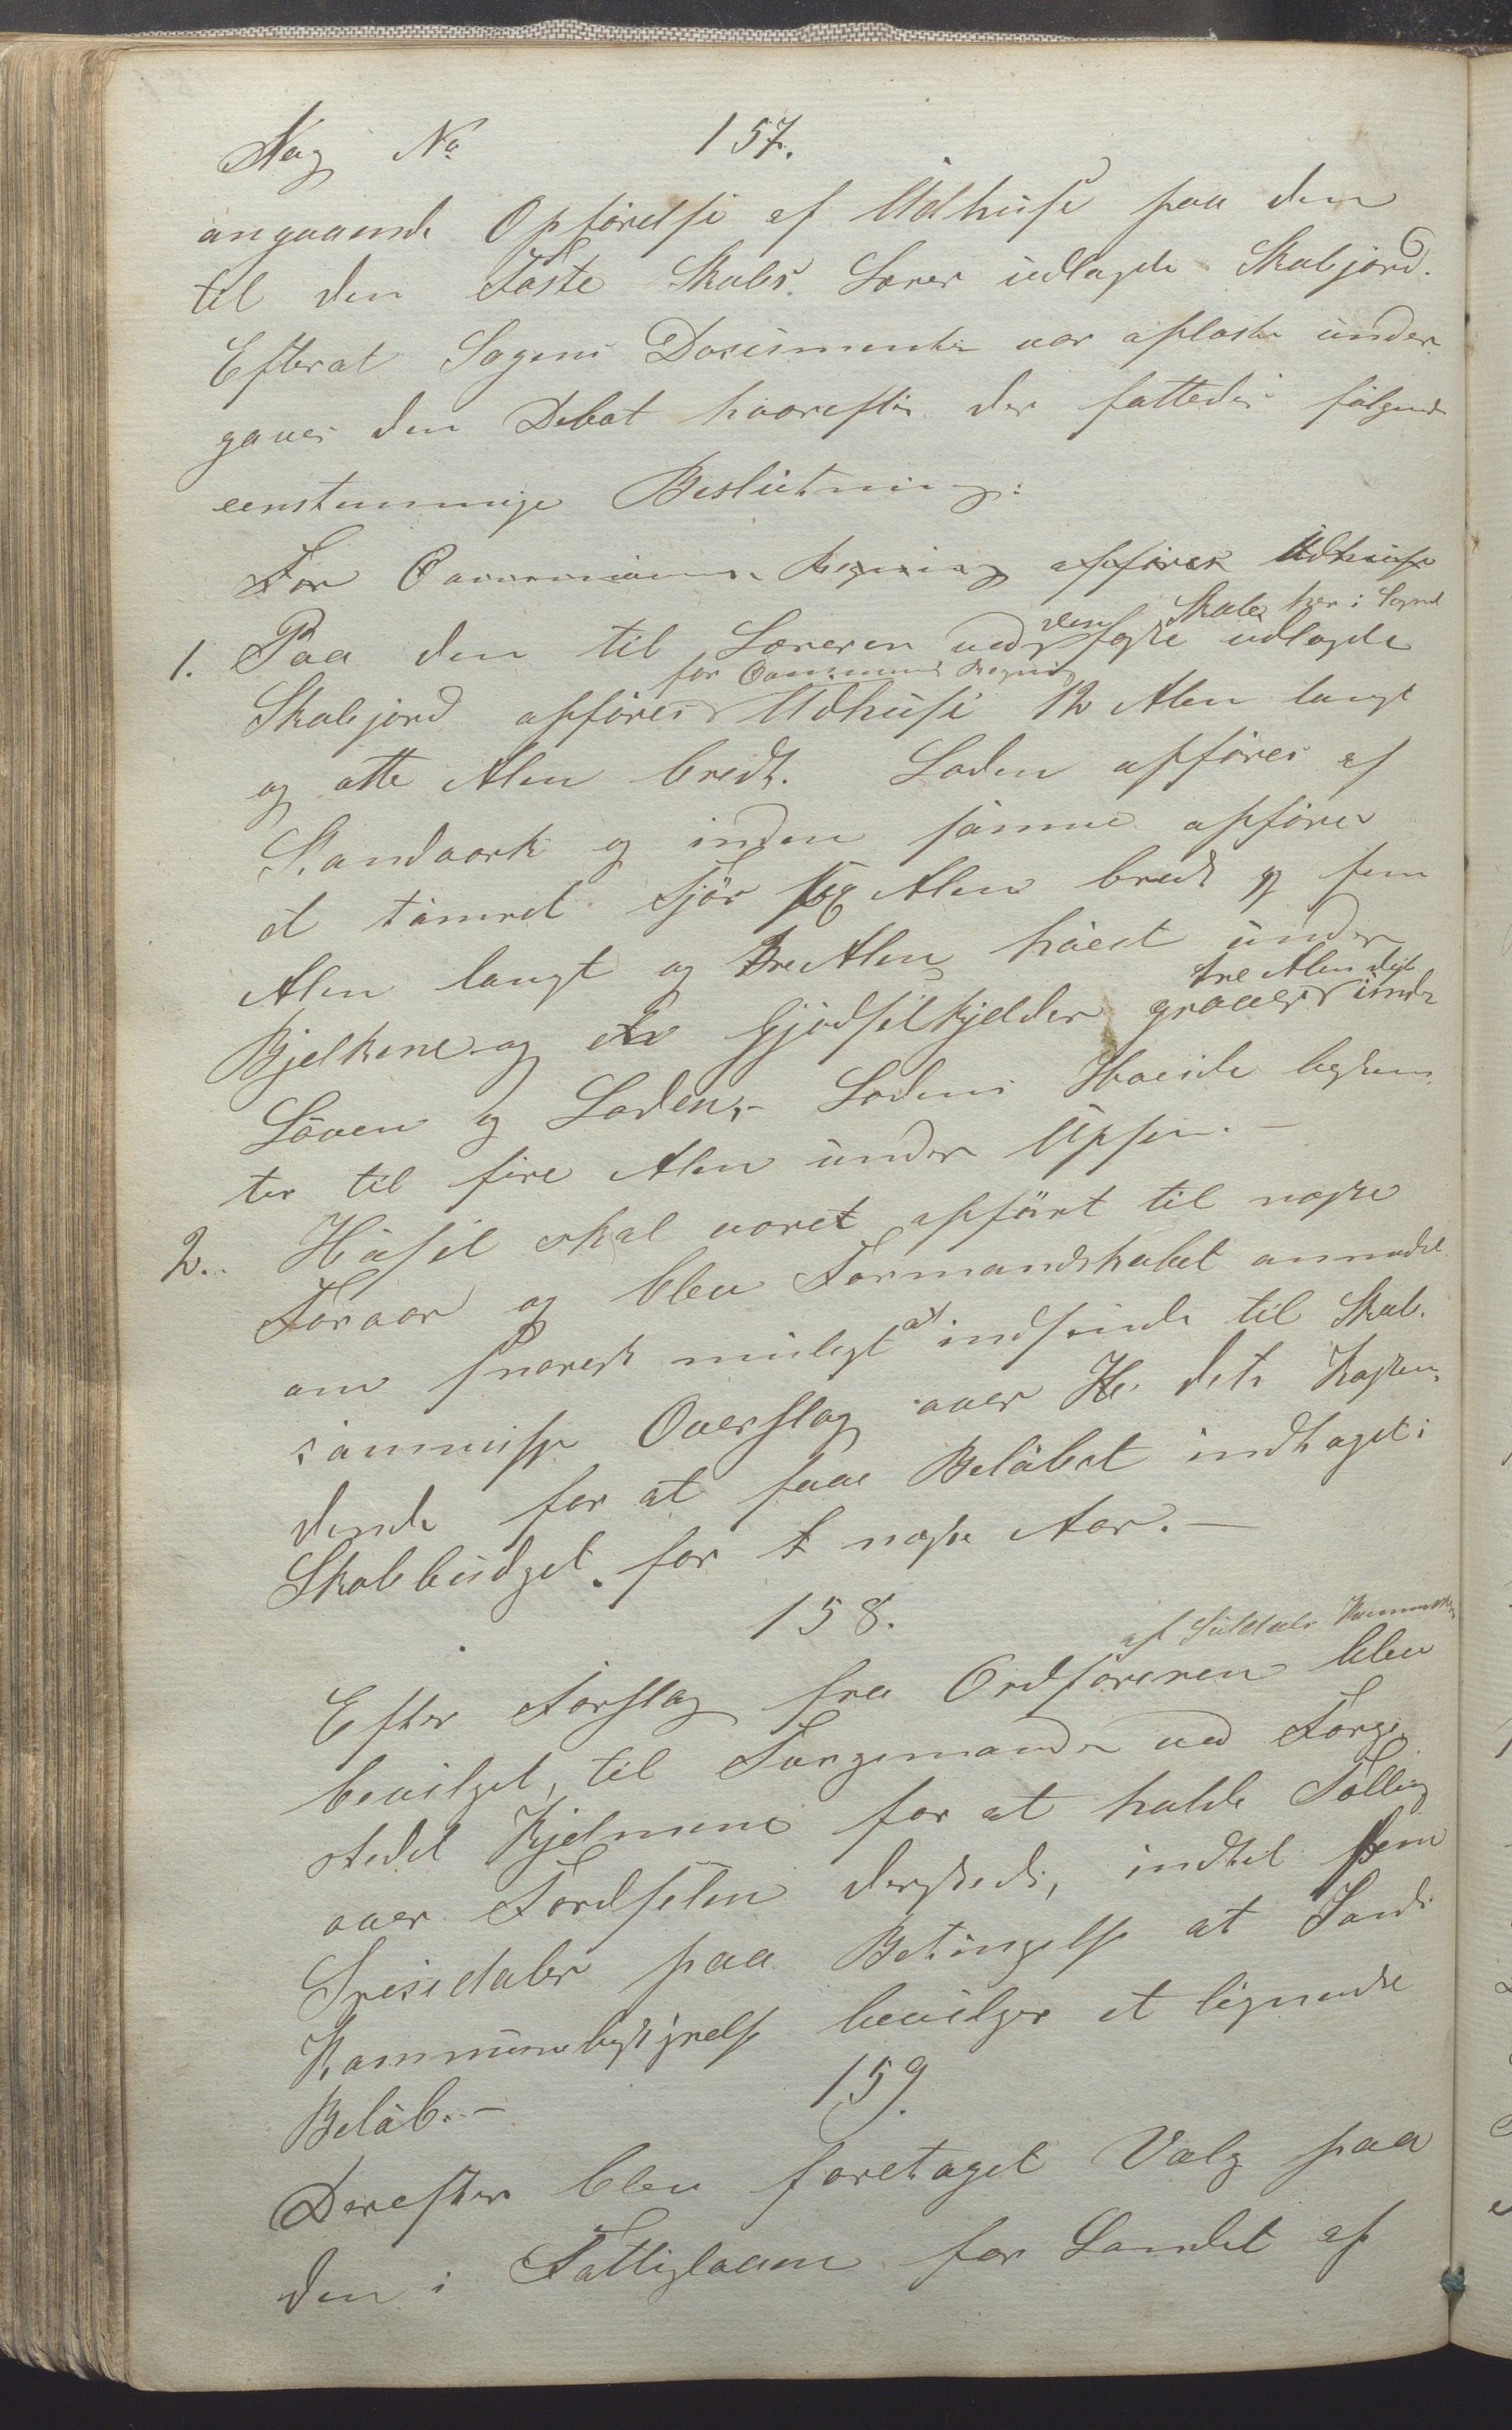 Sag No 157.
angaaende Opførelse af Udhuse paa den
til den faste Skoles Lærer udlagde Skolejord.
Efterat Sagens Documenter var oplæste under
gaves den Debat hvorefter der fattedes følgende
eenstemmige Beslutning:
For Communens Regning opføres Udhuse
1. Paa den til Læreren ved den faste Skole her i Sognet udlagde
Skolejord opføres for Communens Regning Udhuse 12 Alen langt
og otte Alen bredt. Laden opføres af
Standværk og inden samme opføres
et tømret Fjøs sex Alen bredt og fem
Alen langt og tre Alen høiet under
Bjelkene og en Gjødselkjelder graves tre Alen dyb under
Løven og Laden,- Ladens Høide bestem
tes til fire Alen under Upsen.-
2. Huset skal været opført til næste
Foraar og blev Formandskabet anmodet
om snarest muligt at indsende til Skole-
commission Overslag over He dets Kosten-
dende for at faae Beløbet indtaget i
Skolebudget for t næste Aar.-
158.
Efter Forslag fra Ordføreren blev af Suldals Kommune
bevilget, til Færgemanden ved Færge-
stedet Hjelmene for at holde Tælling
over Færdselen dersteds, indtil fem
Speciedaler paa Betingelse at Sands
Kommunebestyrelse bevilger et lignende
Beløb.-
159.
Derefter blev foretaget Valg paa
den i Fattigloven for Landet af